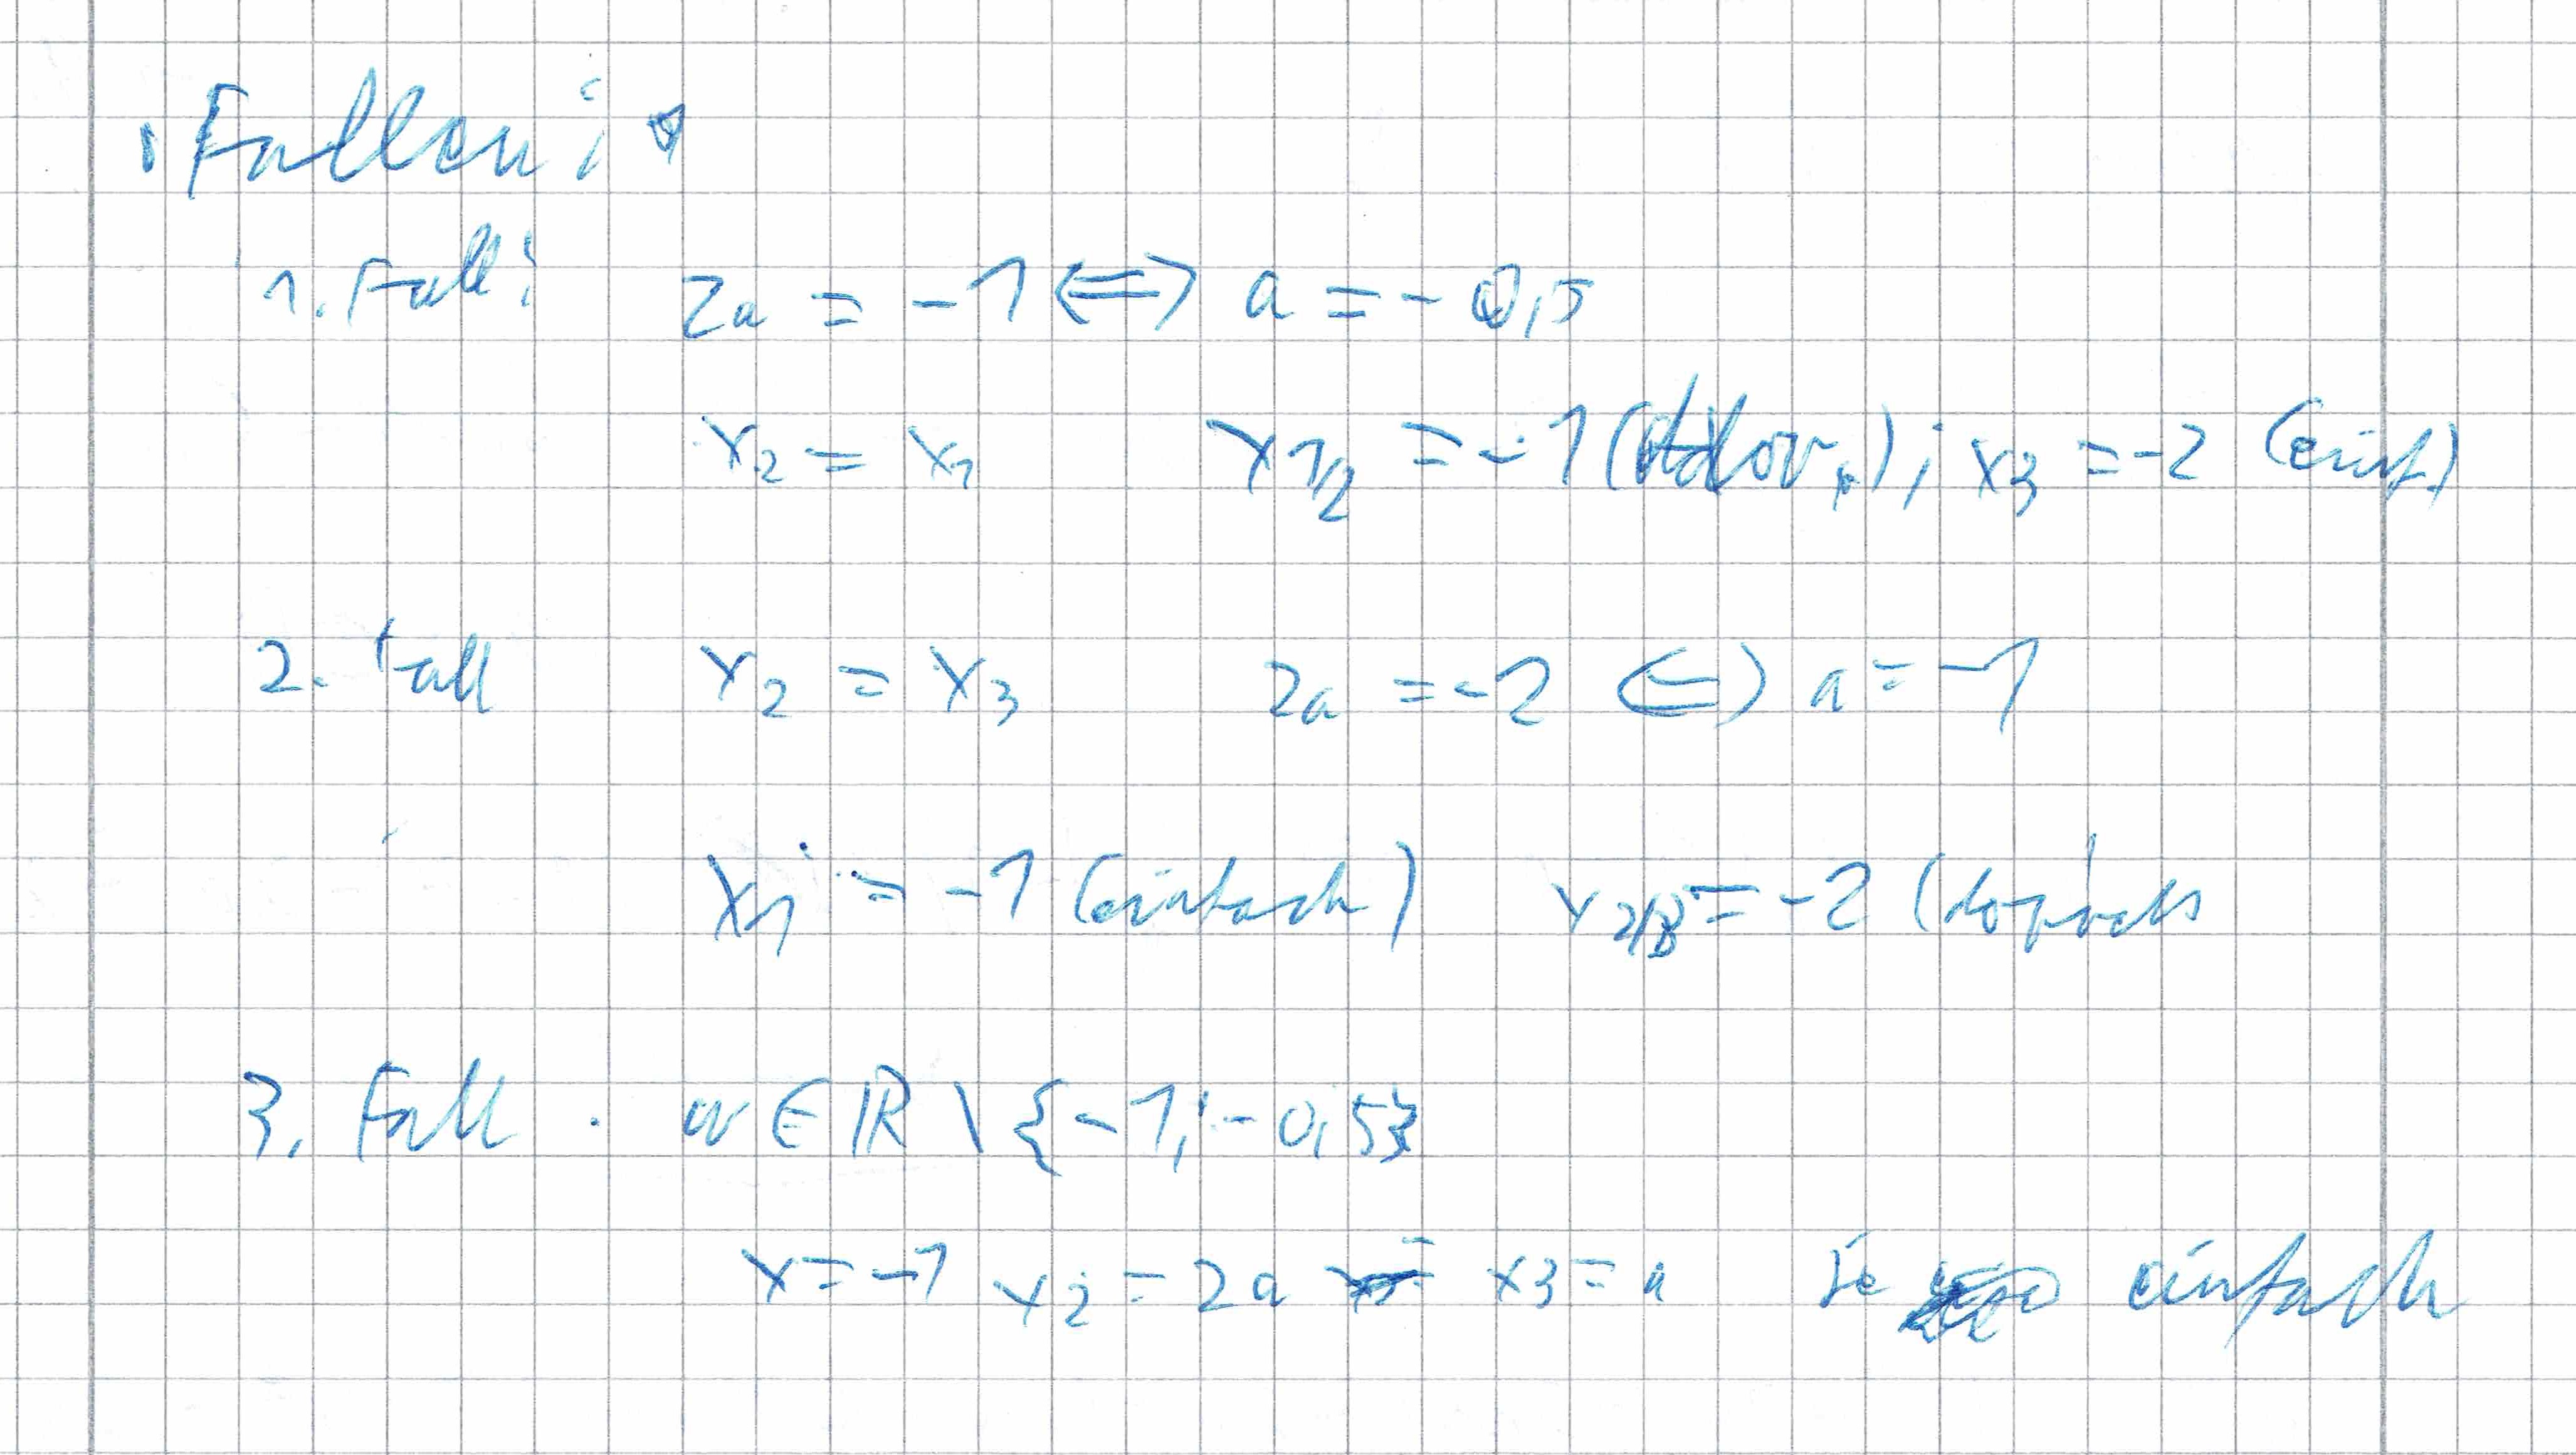 1. Fall: 2a = -1 <=> a = -0,5
x2 = x1 x1/2 = -1 ( ); x3 = -2 (einf)
2. Fall x2 = x3 2a = -2 <=> a = -1
x1 = -1 (einfach) x2/3 = -2 (
3. Fall . a ∈ ℝ \ {-1; -0,5}
x = -1 x2 = 2a x3 = a je einfach